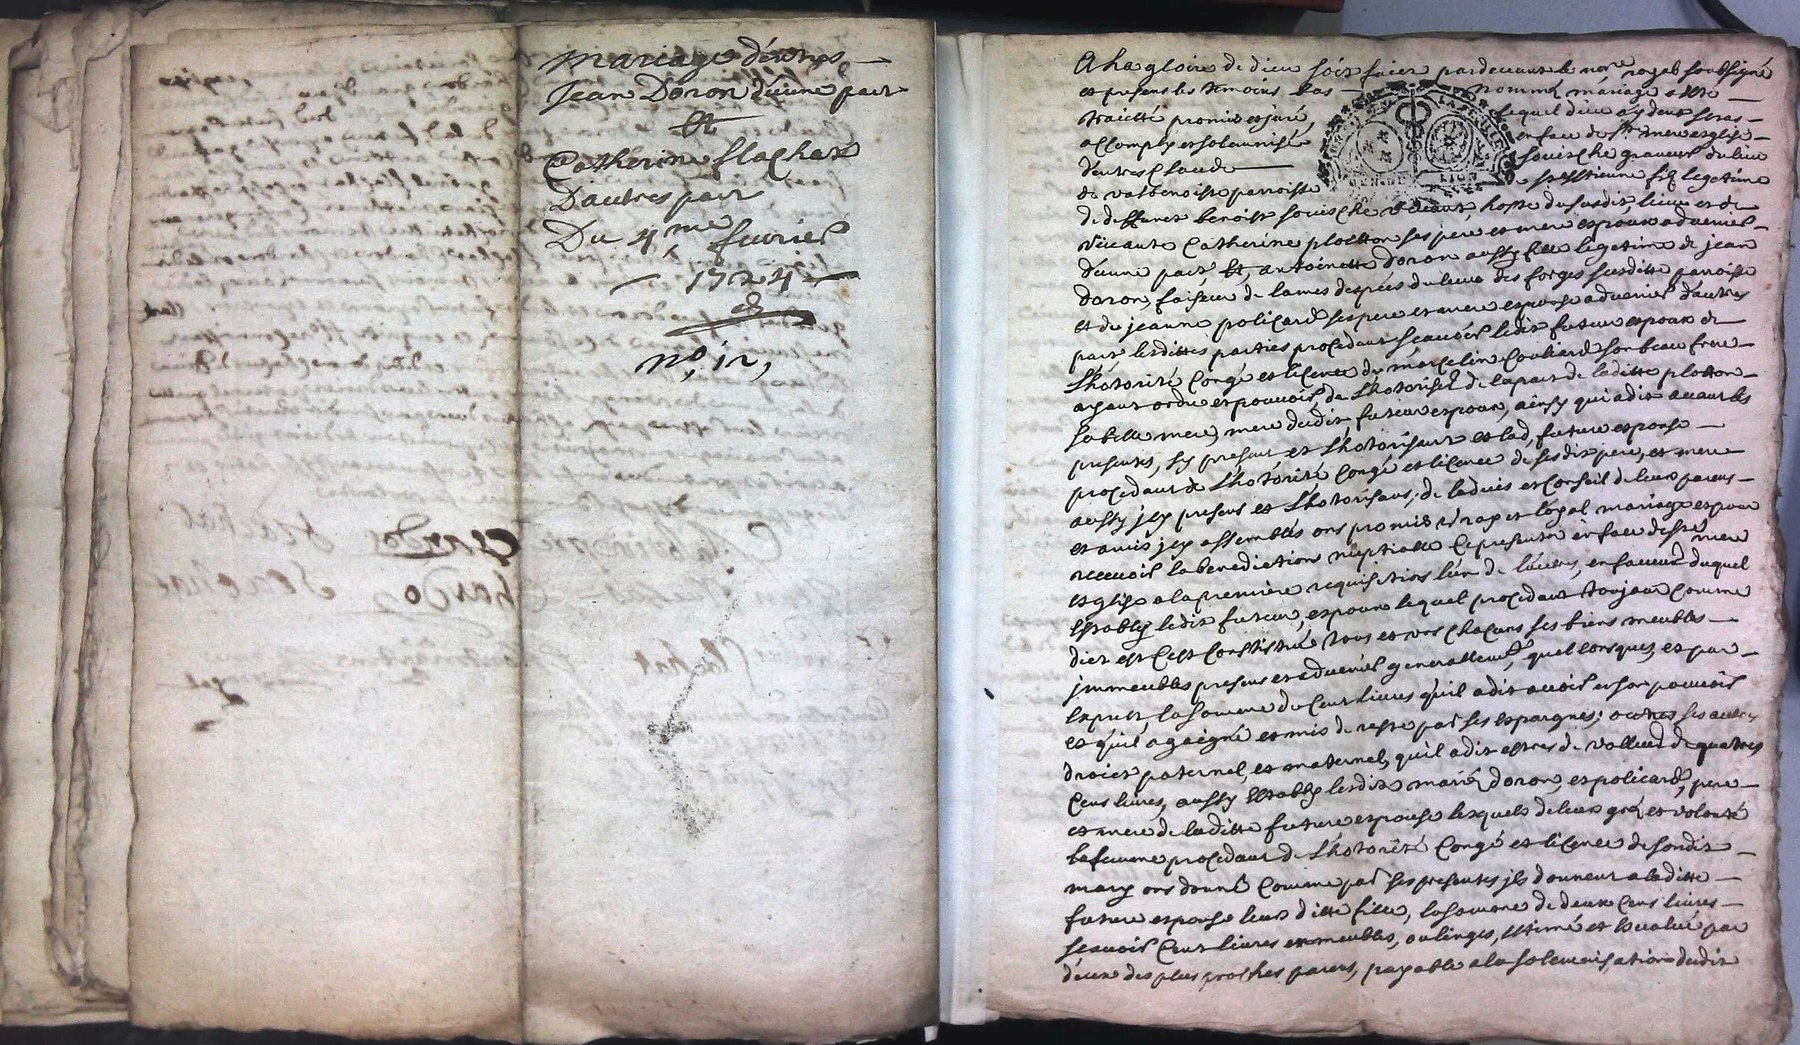 mariage d'entres
Jean Doron d'eune part
Et
Catherine flachat
D'autres part
Du 4me fevrier
1724
no. 12,
A la gloire de dieu soit faict pardevant le nore royal soubsigné
et presens les temoins bas nommé mariage a esté
traicté promis et juré lequel dieu aydent seras
accomply et solemnisé en face de Ste mere esglise
d'entres Claude souische graveur du lieu
de valbenoiste parroisse de St estienne fils legetime
de deffunct benoist souische vivant, hoste du susdit lieu et de
vivante Catherine plotton ses pere et mere espoux advenir
d'eune part Et, antoinette doron aussy fille legetime de jean
doron, faiseur de lames d'espées du lieu des forges susditte parroisse
et de jeanne policard ses pere et mere espouse advenir d'autres
part lesdittes parties procedant sçavoir ledit futeur espoux de
l'hotorité Congé et licence de marcelin Couliard son beau frere
ayant ordre et pouvoir de l'hotoriser de la part de laditte plotton
sa belle mere, mere dudit futeur espoux, ainsy qu'a dit avant les
presentes, jcy present et l'hotorisant et lad, future espouse
procedant de l'hotorité Congé et licence de sesdit pere, et mere
aussy jcy presens et l'hotorisans, de l'advis et Conseil de leurs parens
et amis jcy assemblés ons promis vray et loyal mariage et pour
recevoir la benediction nuptialle ce presenter en face de Ste mere
esglise a la premiere requisition l'un de l'autres, en faveur duquel
establi ledit futeur, espoux lequel procedant toujour Comme
dict est C'est Constitué tous et uns chacuns ses biens meubles
jmmeubles presens et advenir generallement quelconques, et par
exprest la somme de Cent livres qu'il a dit avoir en son pouvoir
et qu'il a gaigné et mis de reste par ses espargnes; outres ses autres
droict paternel, et maternel, qu'il a dit estres de valleur de quatres
Cens livres, aussy Establi lesdits mariés doron, et policard, pere
et mere de laditte future espouse lesquels de leur gré et volonté
la femme procedant de l'hotorité Congé et licence de sondit
mary ons donné Comme par ses presentes jls donnent a laditte
future espouse leur ditte fille, la somme de deux Cens livres
sçavoir Cent livres en meubles, ou linges, estimé et Evalué par
deux des plus proches parens, payable a la solemnisation dudit